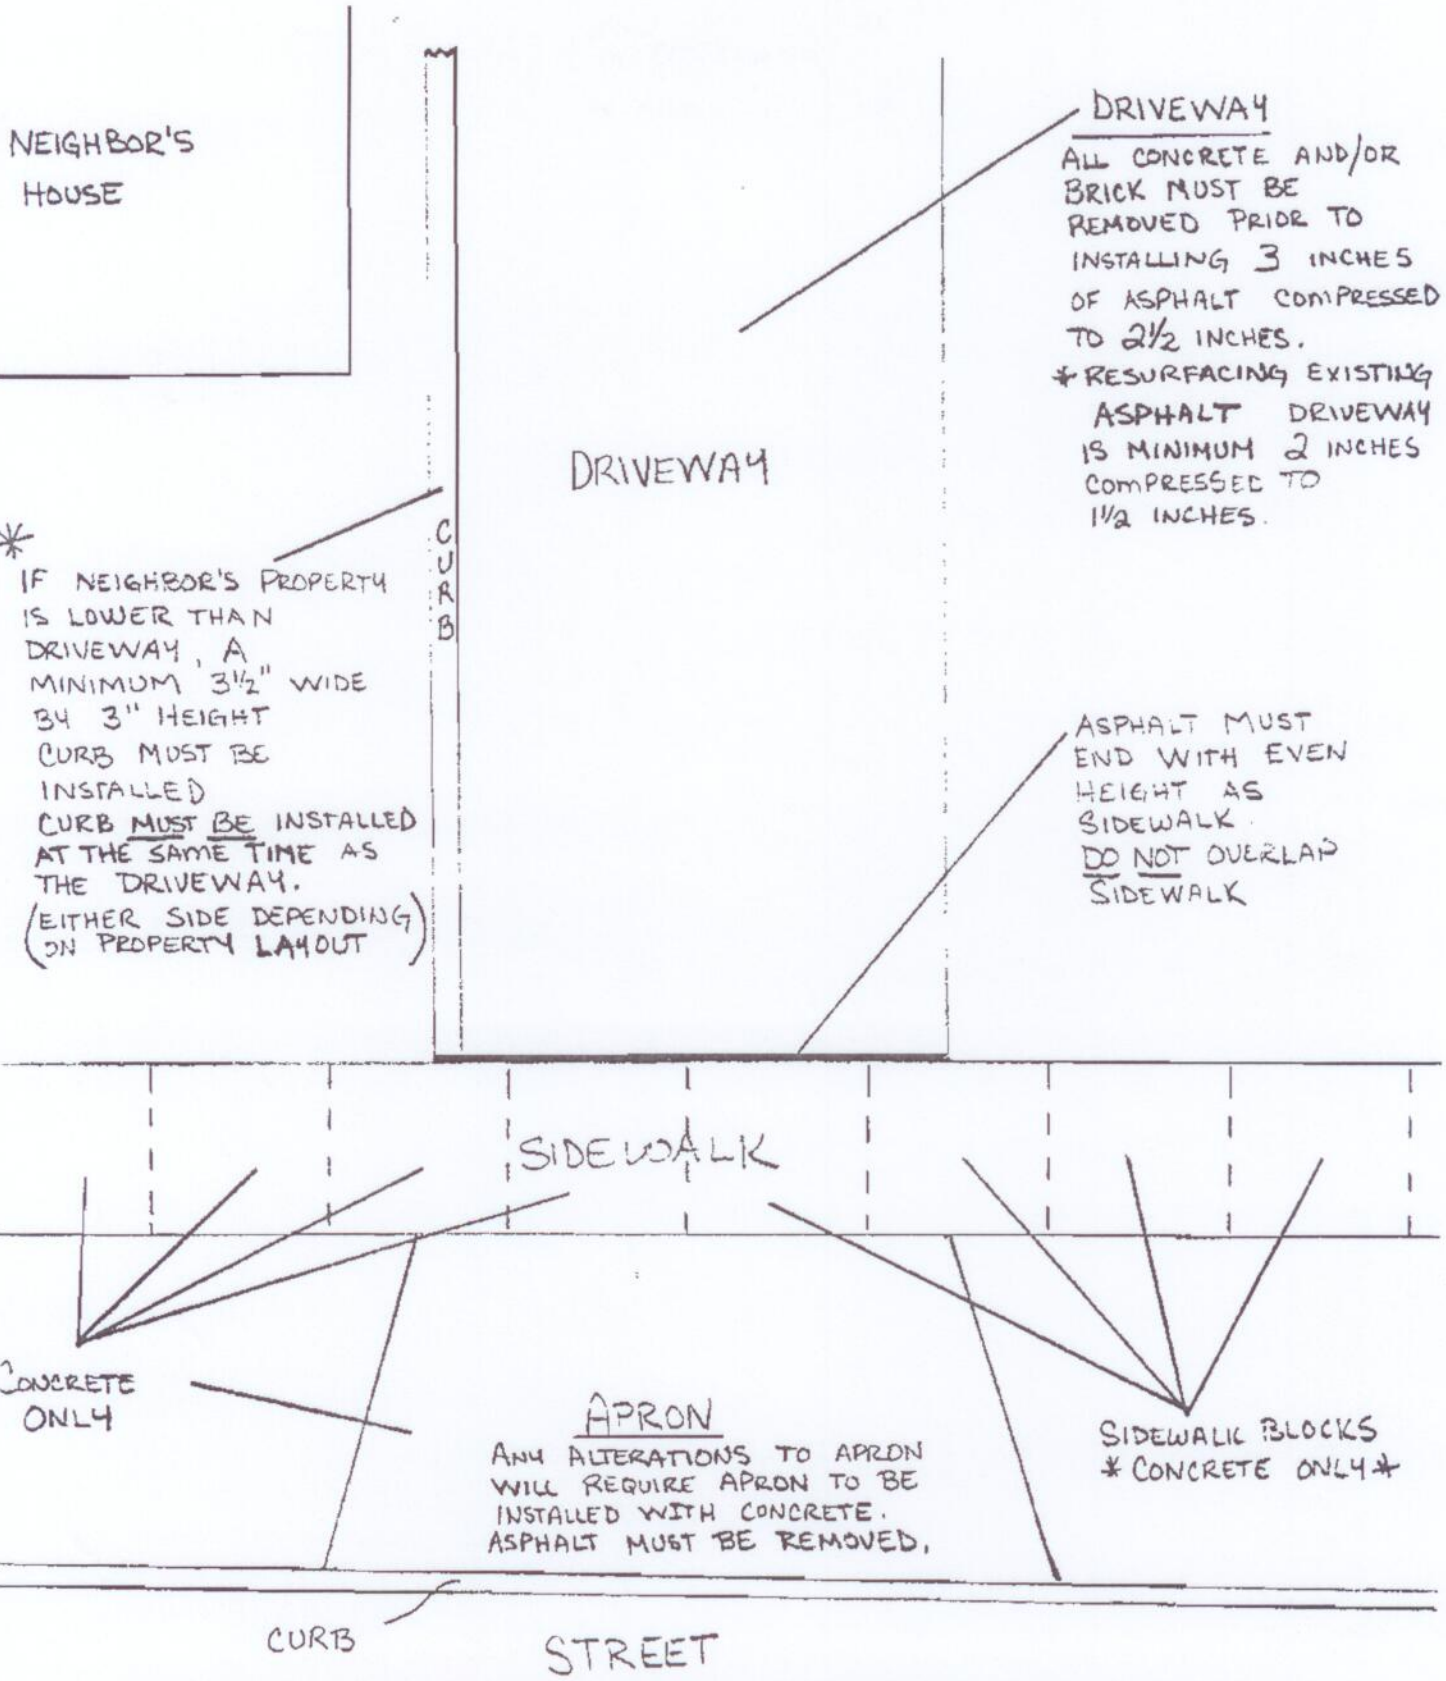 NEIGHBOR'S
HOUSE
DRIVEWAY
ALL CONCRETE AND/OR
BRICK MUST BE
REMOVED PRIOR TO
INSTALLING 3 INCHES
OF ASPHALT COMPRESSED
TO 2 1/2 INCHES.
* RESURFACING EXISTING
ASPHALT DRIVEWAY
IS MINIMUM 2 INCHES
COMPRESSED TO
1 1/2 INCHES.
DRIVEWAY
CURB
*
IF NEIGHBOR'S PROPERTY
IS LOWER THAN
DRIVEWAY, A
MINIMUM 3 1/2" WIDE
BY 3" HEIGHT
CURB MUST BE
INSTALLED
CURB MUST BE INSTALLED
AT THE SAME TIME AS
THE DRIVEWAY.
(EITHER SIDE DEPENDING
ON PROPERTY LAYOUT)
ASPHALT MUST
END WITH EVEN
HEIGHT AS
SIDEWALK.
DO NOT OVERLAP
SIDEWALK
SIDEWALK
CONCRETE
ONLY
APRON
ANY ALTERATIONS TO APRON
WILL REQUIRE APRON TO BE
INSTALLED WITH CONCRETE.
ASPHALT MUST BE REMOVED.
SIDEWALK BLOCKS
* CONCRETE ONLY *
CURB
STREET